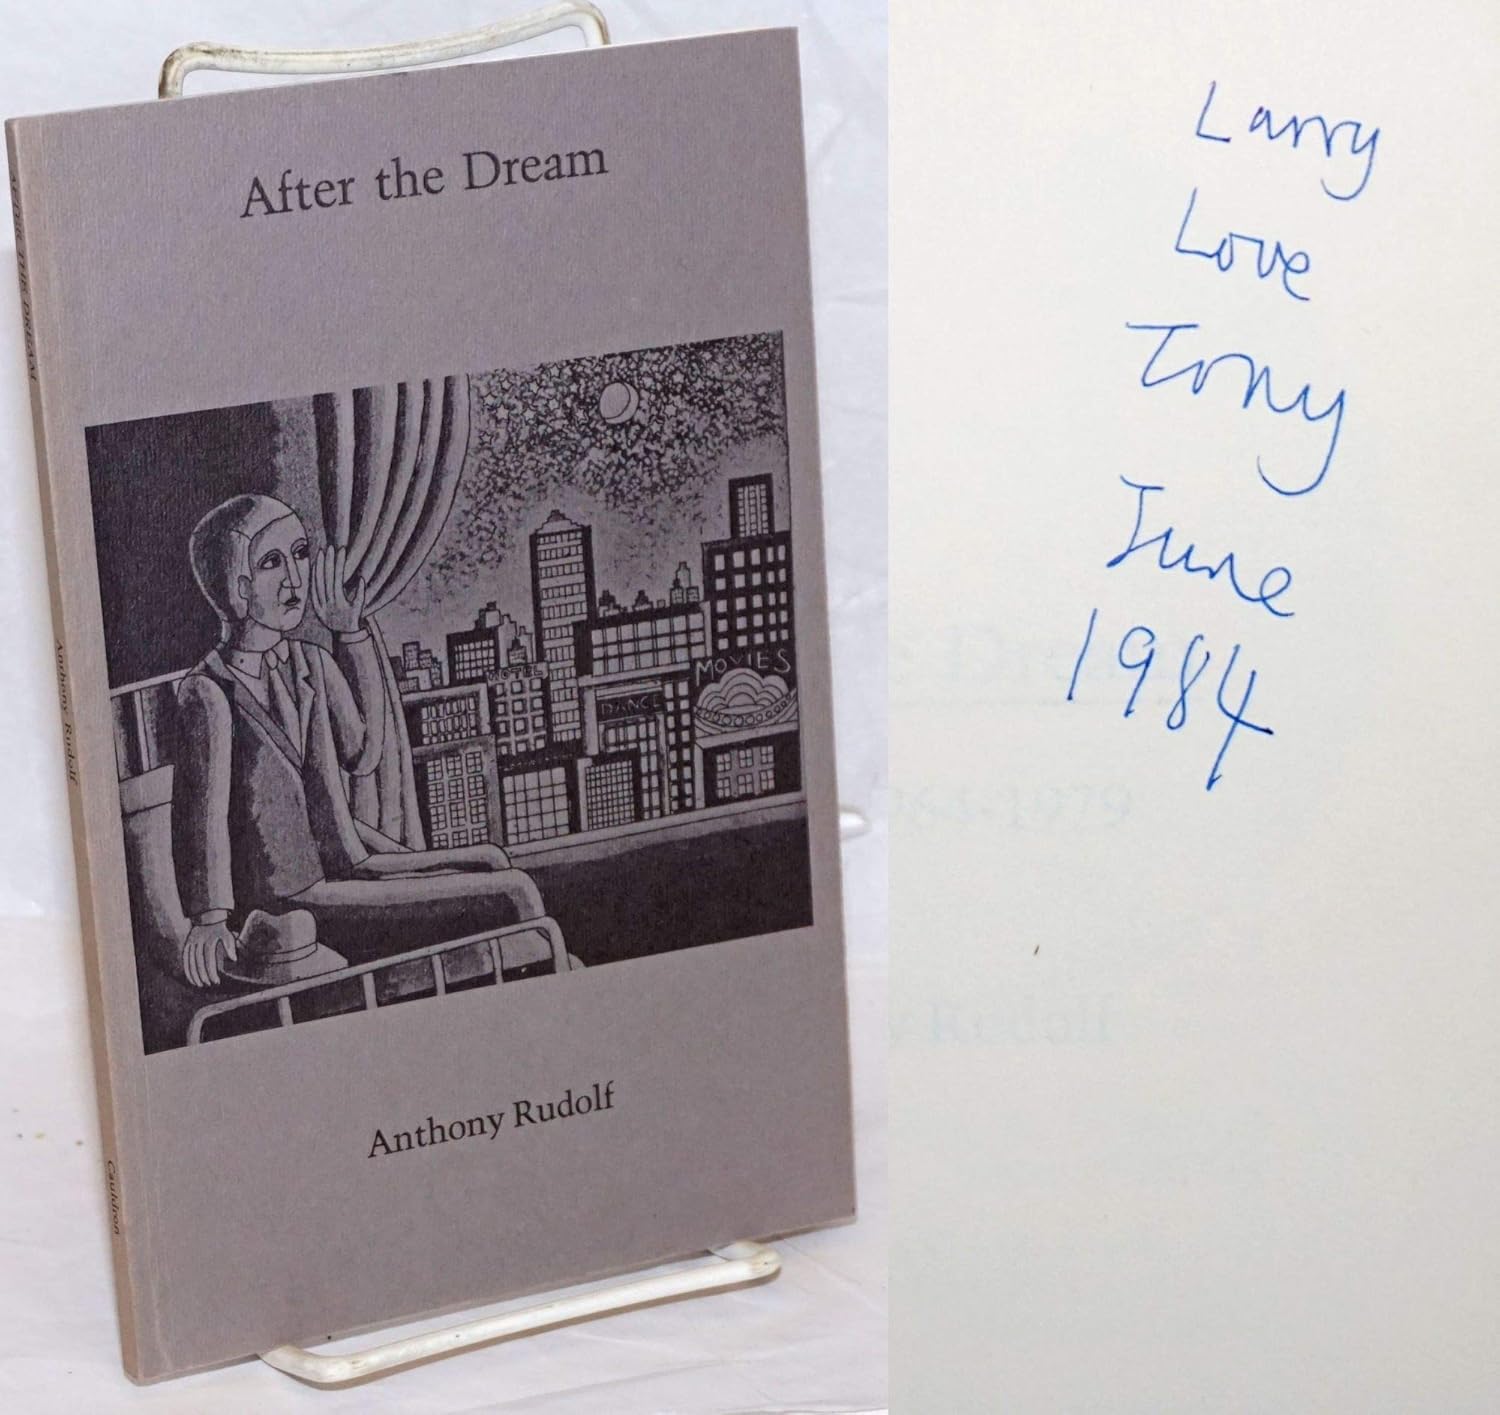 After the Dream
MOTEL
DANCE
MOVIES
Anthony Rudolf
AFTER THE DREAM
Anthony Rudolf
Cauldron
Larry
Love
Tony
June
1984
1979
Rudolf